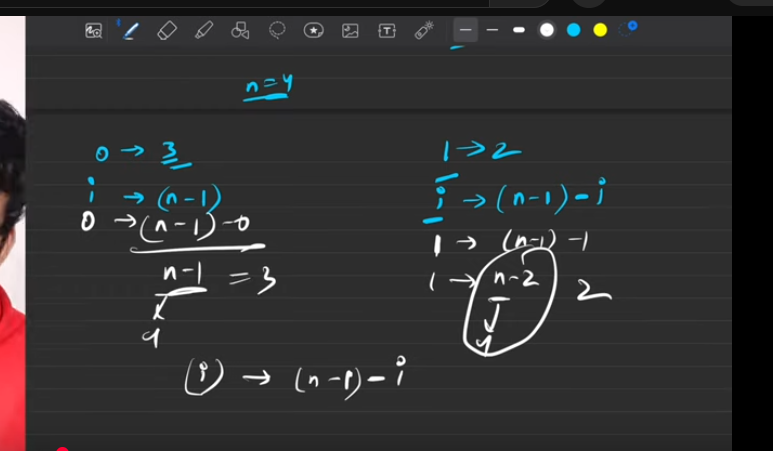 n=4
0 → 3
i → (n-1)
0 → (n-1)-0
n-1 = 3
4
1 → 2
i → (n-1)-i
1 → (n-1)-1
1 → n-2 2
4
(i) → (n-1)-i